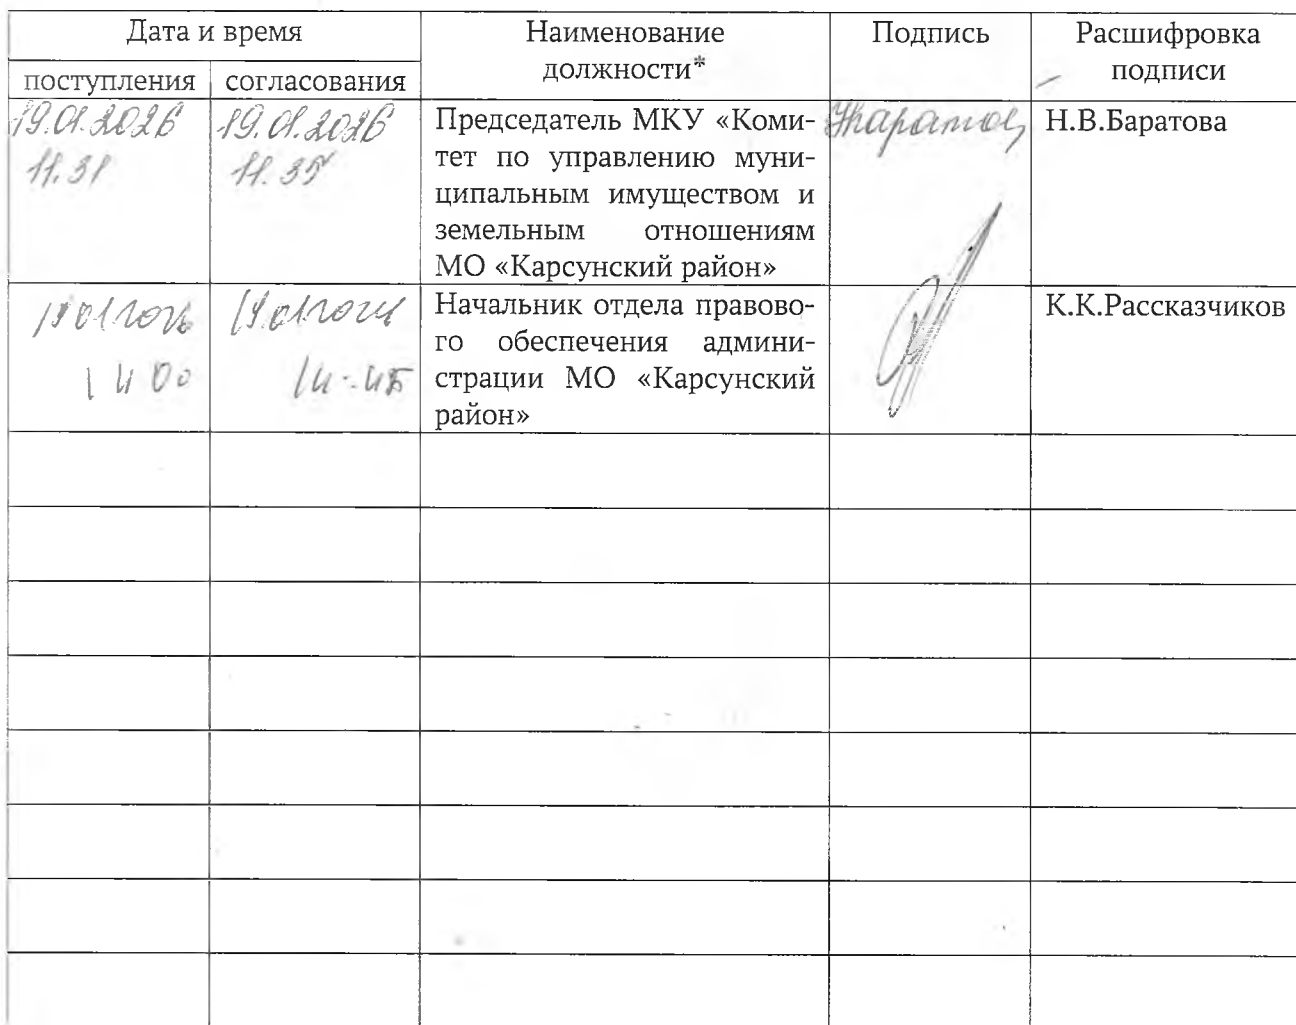 Дата и время
Наименование
должности*
Подпись
Расшифровка
подписи
поступления
согласования
19.01.2026
11.31
19.01.2026
11.35
Председатель МКУ «Коми-
тет по управлению муни-
ципальным имуществом и
земельным отношениям
МО «Карсунский район»
Н.В.Баратова
14 00
14-45
Начальник отдела правово-
го обеспечения админи-
страции МО «Карсунский
район»
К.К.Рассказчиков